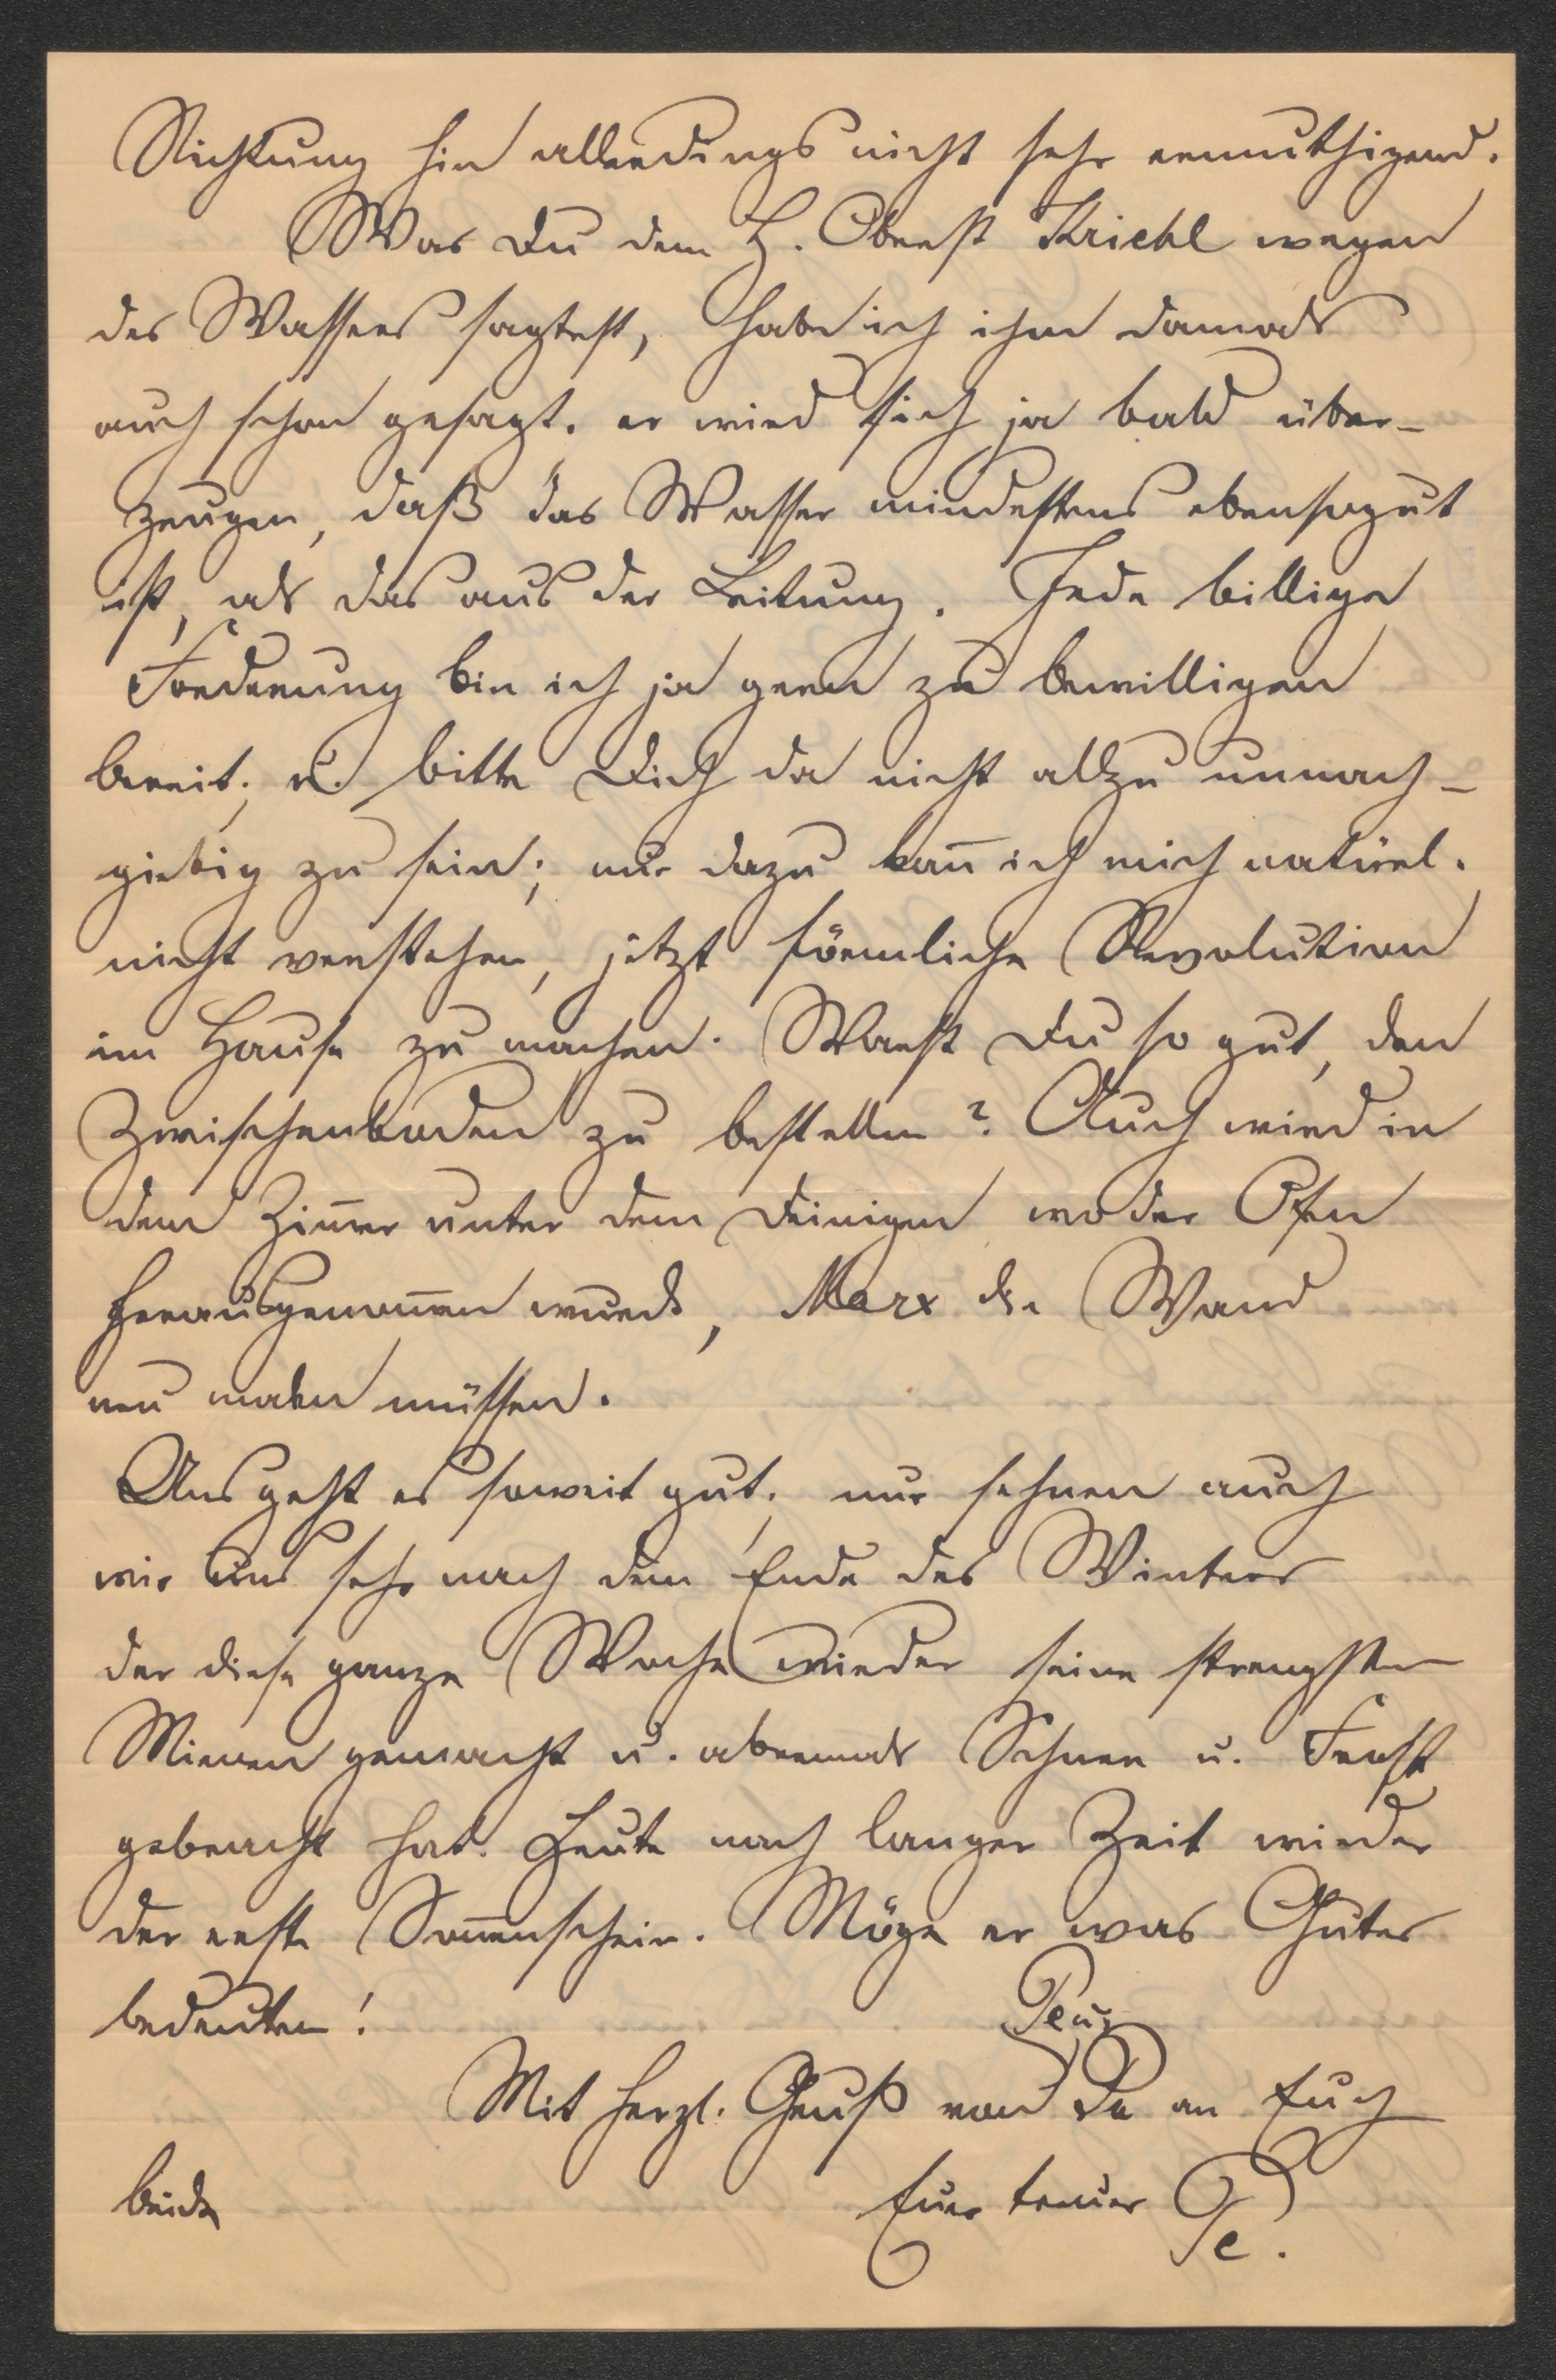 Richtung hin allerdings nicht sehr ermuthigend.
Was Du dem H. Oberst Kriebl wegen
des Wassers sagtest, habe ich ihm damals
auch schon gesagt. er wird sich ja bald über-
zeugen, daß das Wasser mindestens ebensogut
ist, als das aus der Leitung. Jede billige
Forderung bin ich ja gern zu bewilligen
bereit; u. bitte Dich da nicht allzu unnach-
giebig zu sein; nur dazu kan̄ ich mich natürl.
nicht verstehen, jetzt förmliche Revolution
im Hause zu machen. Warst Du so gut, den
Zwischenboden zu bestellen? Auch wird in
dem Zim̄er unter dem Deinigen wo der Ofen
herausgenom̄en wurde, Marx die Wand
neu malen müssen.
Uns geht es soweit gut, nur sehnen auch
wir uns sehr nach dem Ende des Winters
der diese ganze Woche wieder seine strengsten
Mienen gemacht u. abermals Schnee u. Frost
gebracht hat. Heute nach langer Zeit wieder
der erste Son̄enschein. Möge er was Gutes
bedeuten!
Mit herzl. Gruß von an Euch
beide Euer treuer Pe.